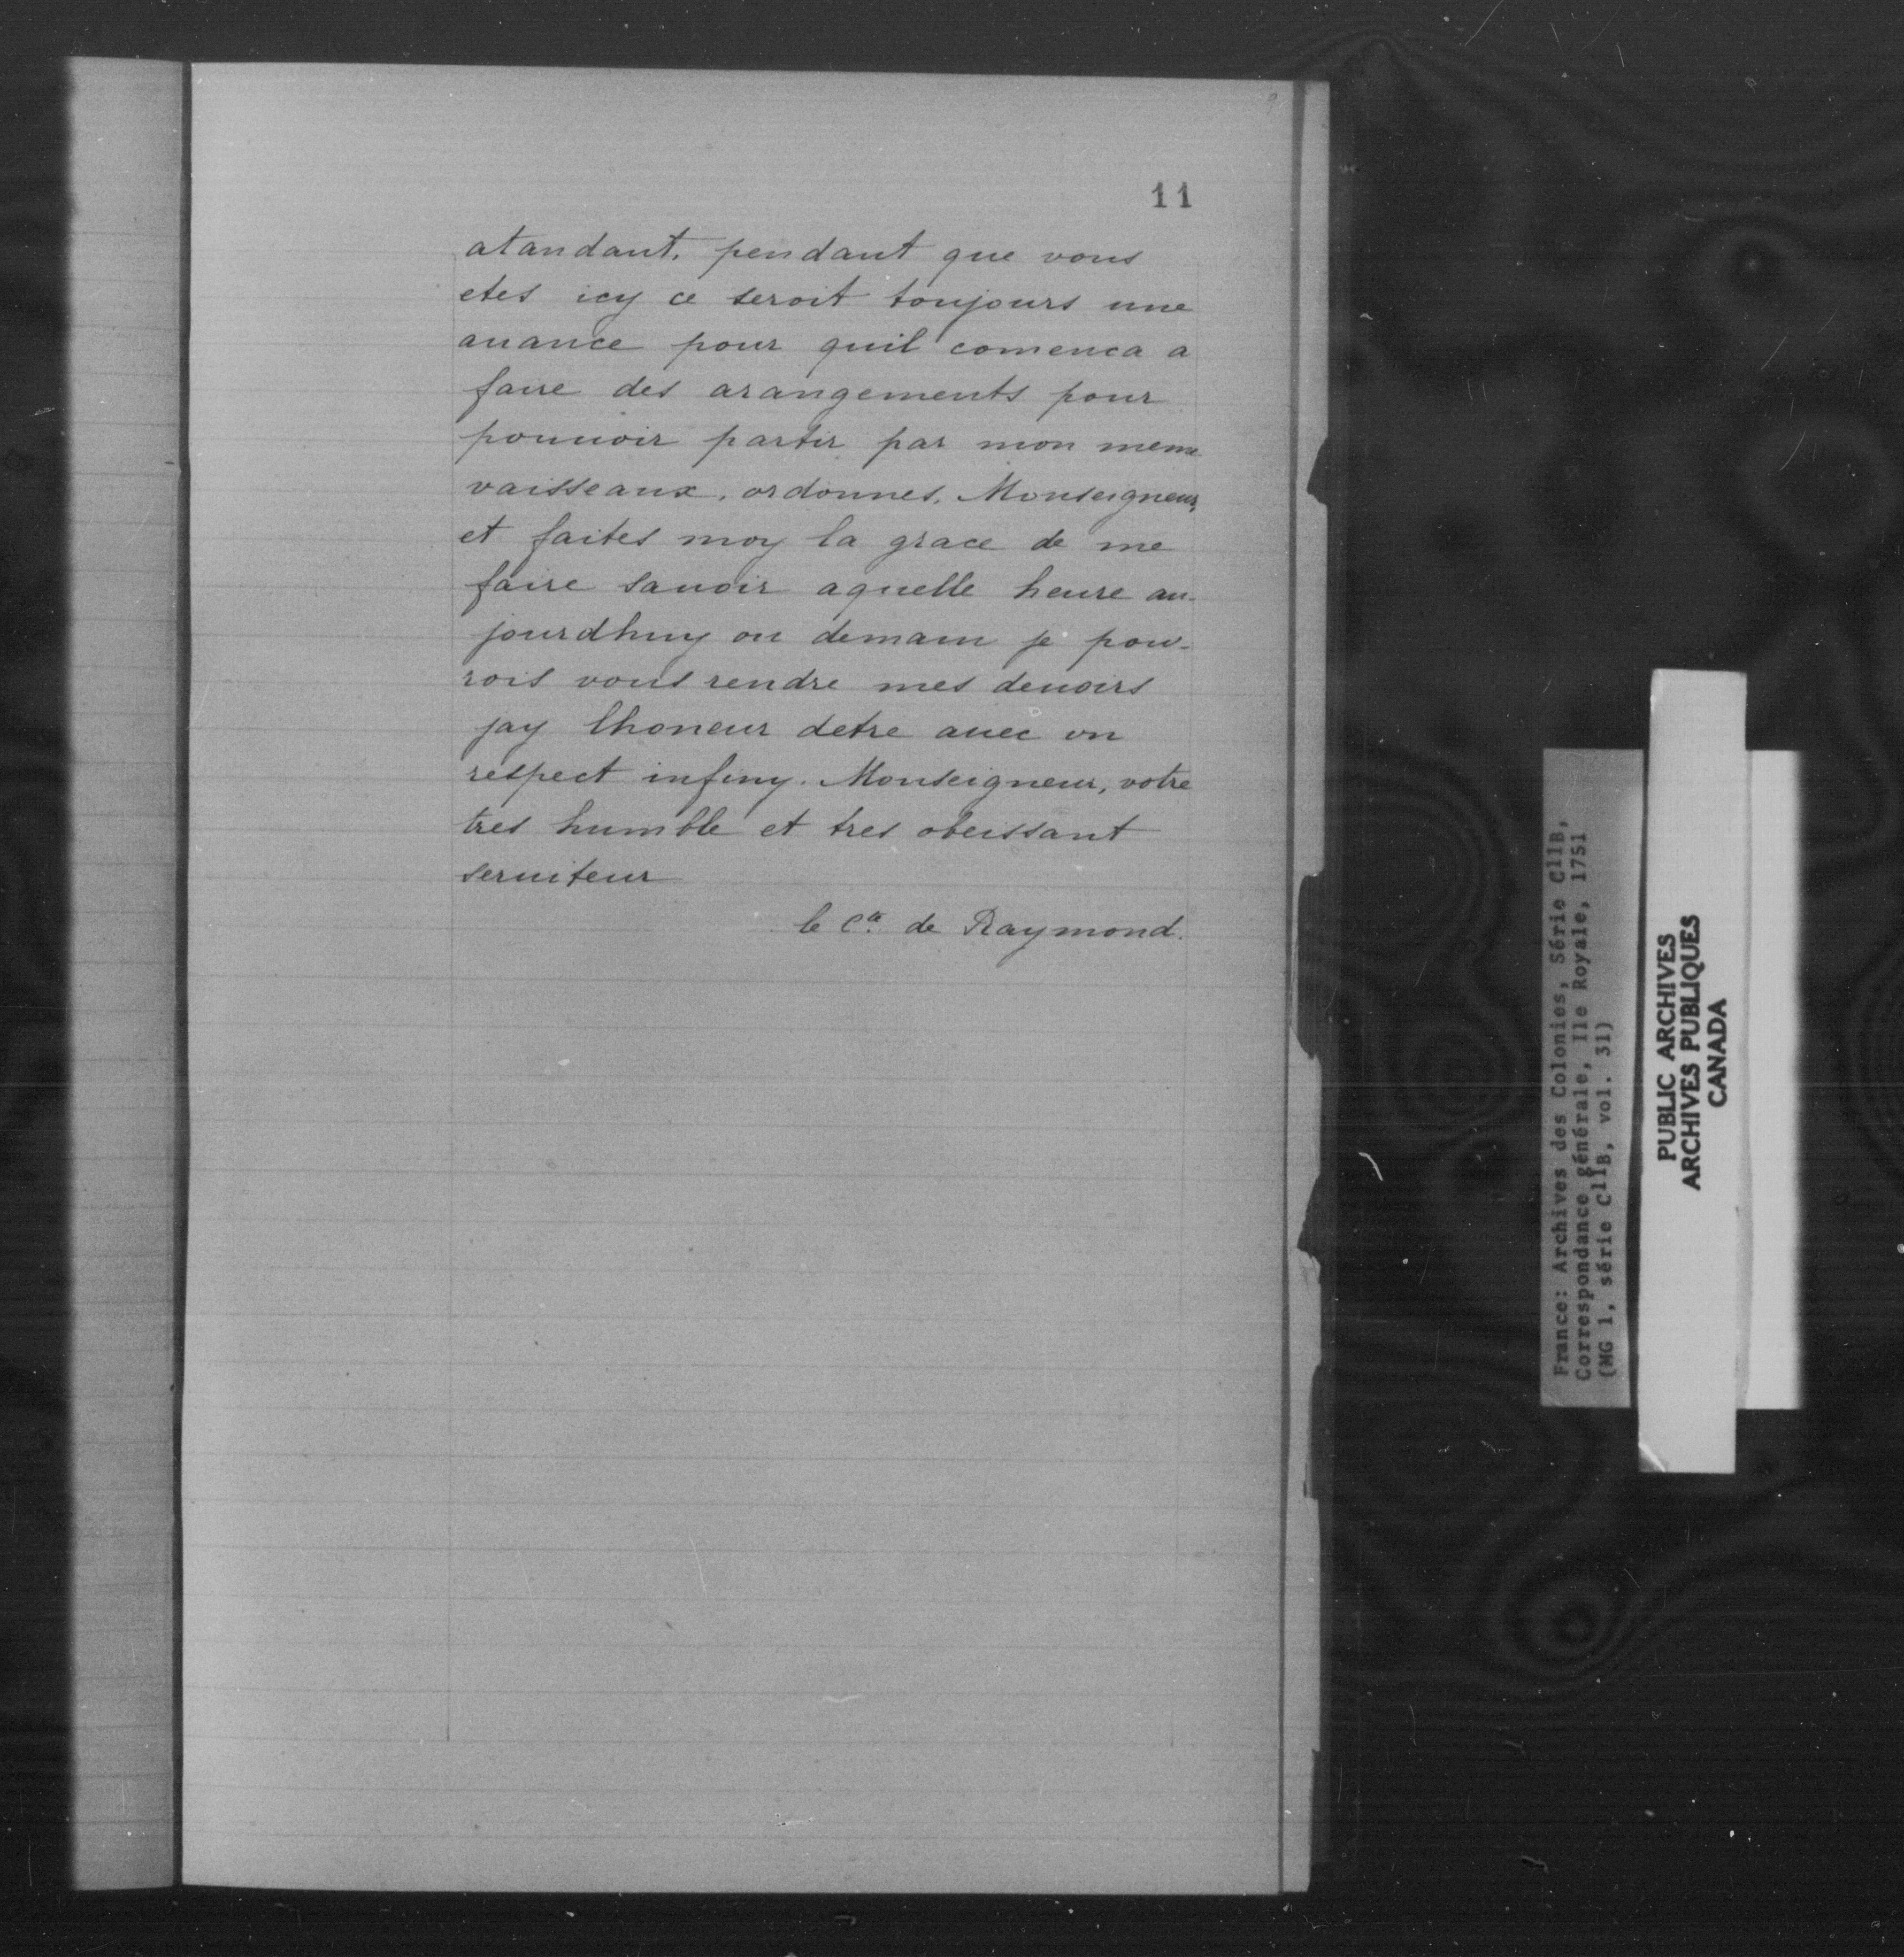 11
atandant, pendant que vous
etes icy ce seroit toujours une
auance pour quil comenca a
faire des arangements pour
pouuoir partir par mon meme
vaisseaux, ordonnes, Monseigneur,
et faites moy la grace de me
faire sauoir aquelle heure au-
jourdhuy ou demain je pou-
rois vous rendre mes deuoirs
jay lhoneur detre auec un
respect infiny. Monseigneur, votre
tres humble et tres obeissant
seruiteur
le Cte de Raymond.
France: Archives des Colonies, Série C11B,
Correspondance générale, Ile Royale, 1751
(MG 1, série C11B, vol. 31)
PUBLIC ARCHIVES
ARCHIVES PUBLIQUES
CANADA